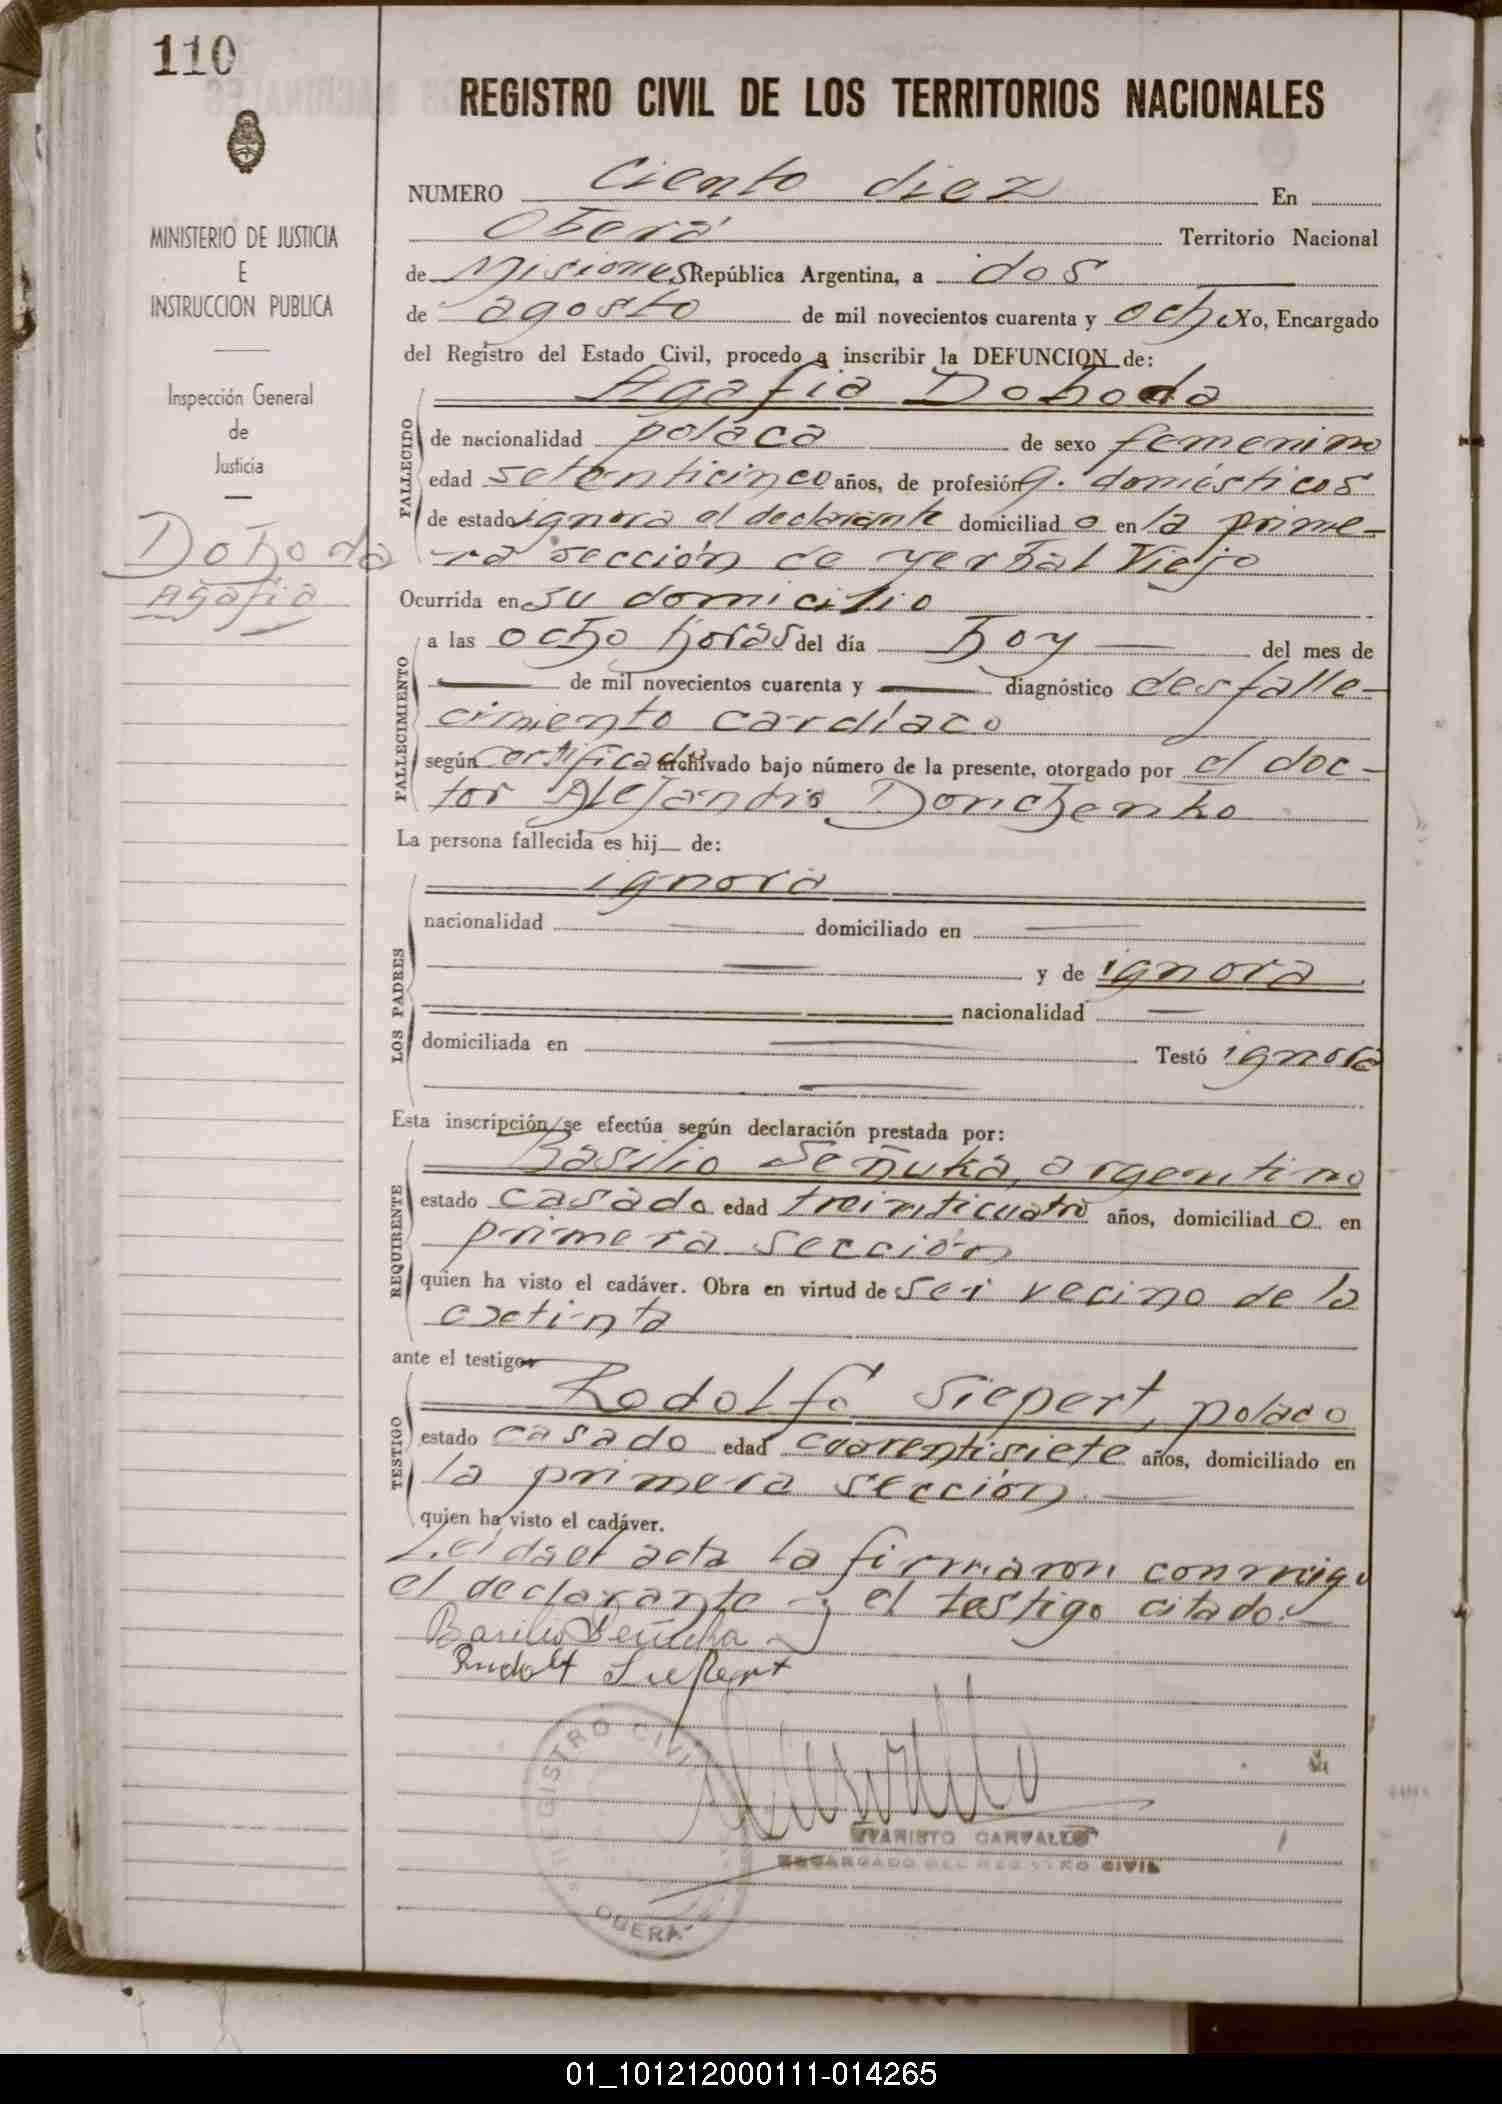 110
REGISTRO CIVIL DE LOS TERRITORIOS NACIONALES
MINISTERIO DE JUSTICIA
E
INSTRUCCION PUBLICA
Inspección General
de
Justicia
Dohoda
Agafia
NUMERO Ciento diez En
Oberá Territorio Nacional
de Misiones República Argentina, a dos
de agosto de mil novecientos cuarenta y ocho Yo, Encargado
del Registro del Estado Civil, procedo a inscribir la DEFUNCION de:
Agafia Dohoda
FALLECIDO
de nacionalidad polaca de sexo femenino
edad setenticinco años, de profesión q. domésticos
de estado ignora el declarante domiciliad o en la prime-
ra sección de Yerbal Viejo
Ocurrida en su domicilio
FALLECIMIENTO
a las ocho horas del día hoy del mes de
de mil novecientos cuarenta y diagnóstico desfalle-
cimiento cardíaco
según certificado archivado bajo número de la presente, otorgado por el doc-
tor Alejandro Donchenko
La persona fallecida es hij de:
LOS PADRES
ignora
nacionalidad domiciliado en
y de ignora
nacionalidad
domiciliada en Testó ignora
Esta inscripción se efectúa según declaración prestada por:
REQUIRENTE
Basilio Señuka, argentino
estado casado edad treinticuatro años, domiciliad o en
primera sección
quien ha visto el cadáver. Obra en virtud de ser vecino de la
extinta
ante el testigo
TESTIGO
Rodolfo Siepert, polaco
estado casado edad cuarentisiete años, domiciliado en
la primera sección
quien ha visto el cadáver.
Leída el acta la firmaron conmigo
el declarante y el testigo citado.
Basilio Señuka
Rudolf Siepert
REGISTRO CIVIL
OBERA
EVARISTO CARVALLO
ENCARGADO DEL REGISTRO CIVIL
01_101212000111-014265